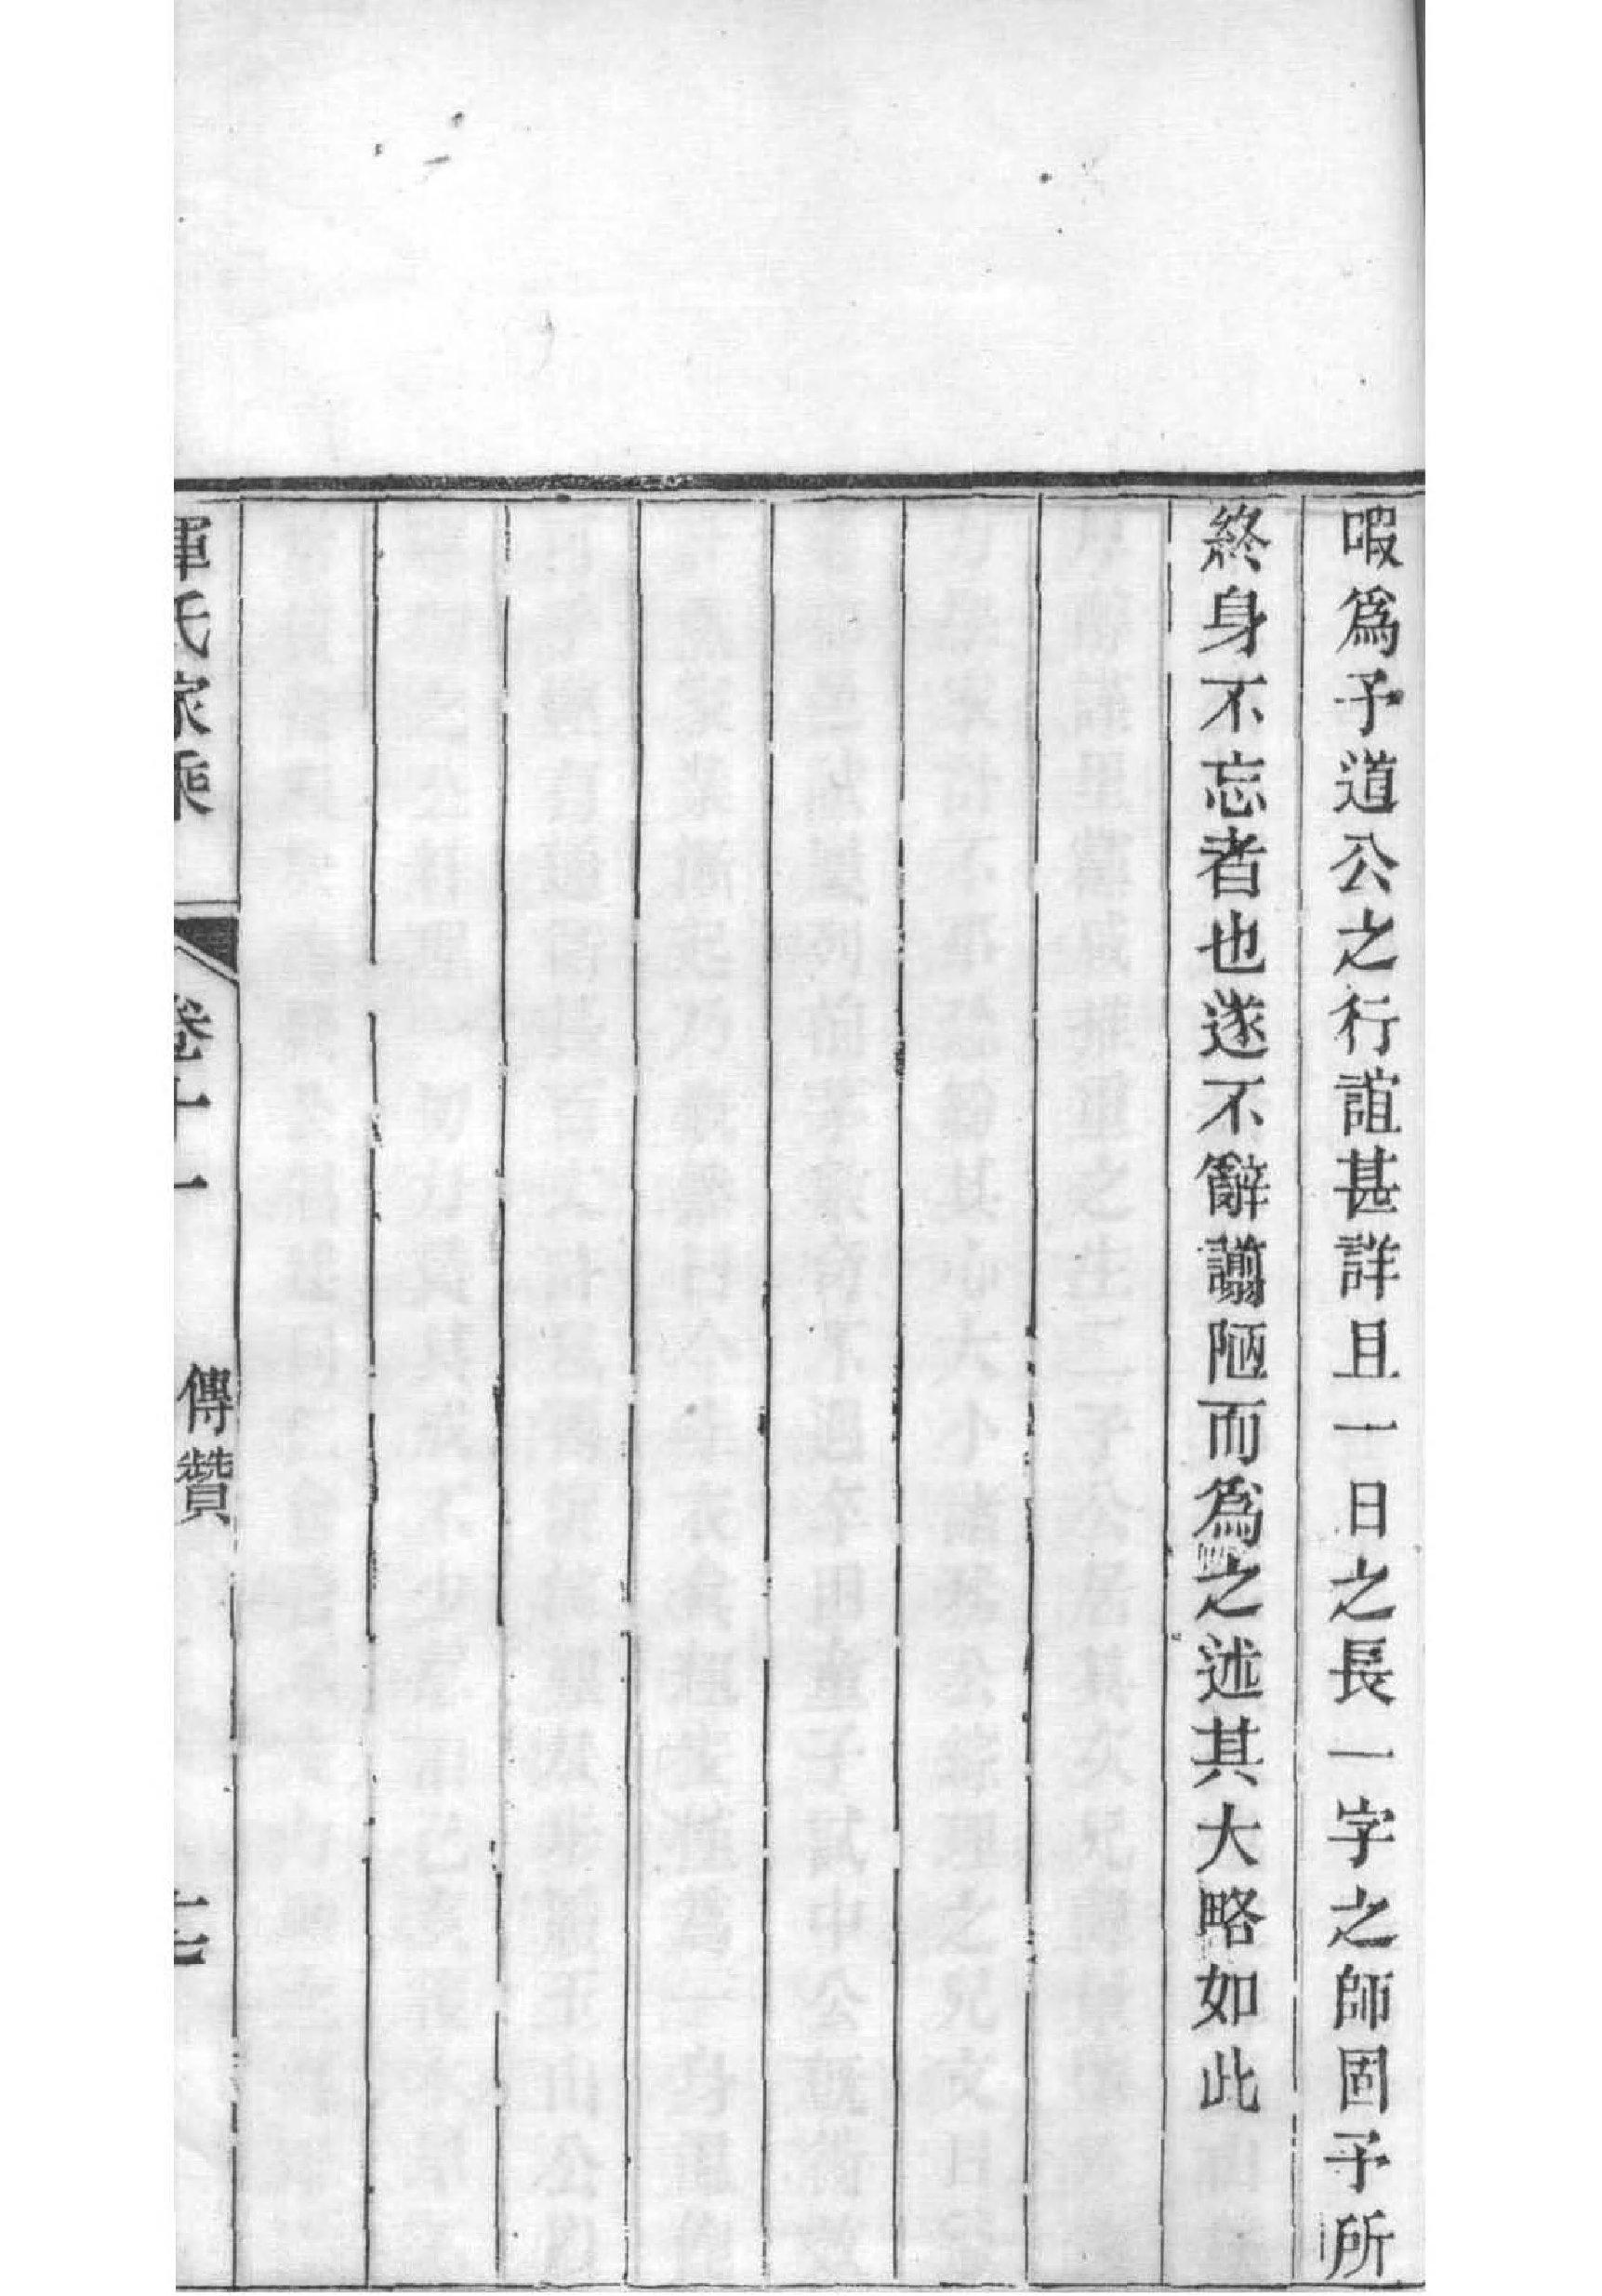 暇爲予道公之行誼甚詳且一日之長一字之師固予所
終身不忘者也遂不辭譾陋而爲之述其大略如此
惲氏家乘
卷十一
傳贊